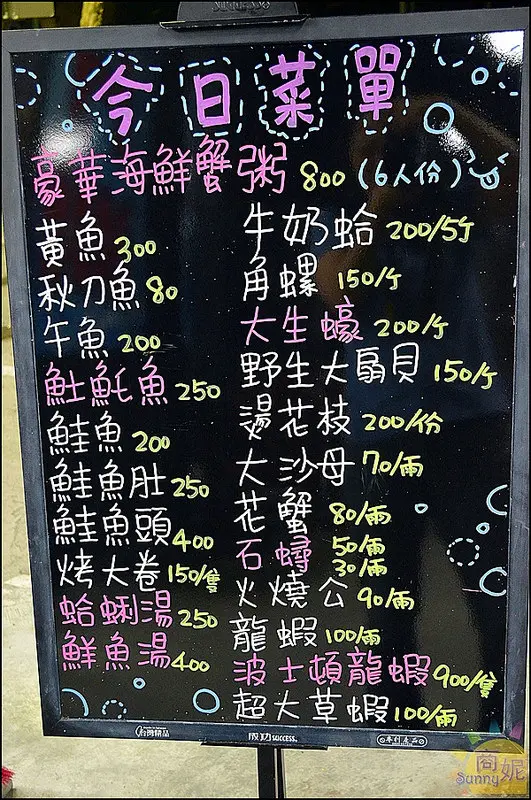 今日菜單
豪華海鮮蟹粥 800 (6人份)
黃魚 300
秋刀魚 80
午魚 200
魟魠魚 250
鮭魚 200
鮭魚肚 250
鮭魚頭 400
烤大卷 150/隻
蛤蜊湯 250
鮮魚湯 400
牛奶蛤 200/5ケ
角螺 150/ケ
大生蠔 200/ケ
野生大扇貝 150/ケ
燙花枝 200/份
大沙母 70/兩
花蟹 80/兩
石蟳 50/兩
30/兩
火燒公 90/兩
龍蝦 100/兩
波士頓龍蝦 900/隻
超大草蝦 100/兩
台灣精品
成功 SUCCESS.
專利產品
Sunny 商妮